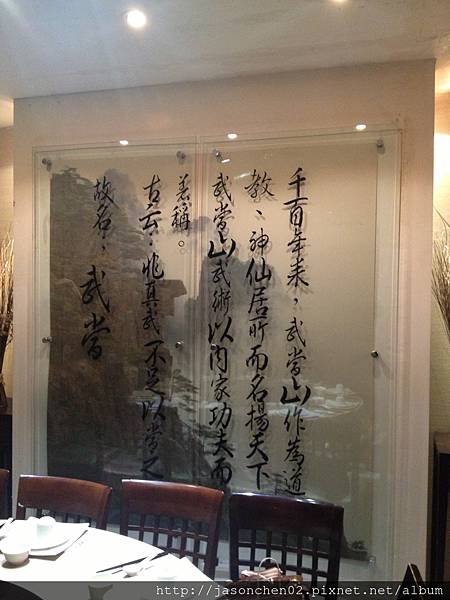 千百年來，武當山作為道
教、神仙居所而名揚天下
武當山武術以內家功夫而
著稱。
古云：非真武不足以當之
故名：武當
http://jasonchen02.pixnet.net/album